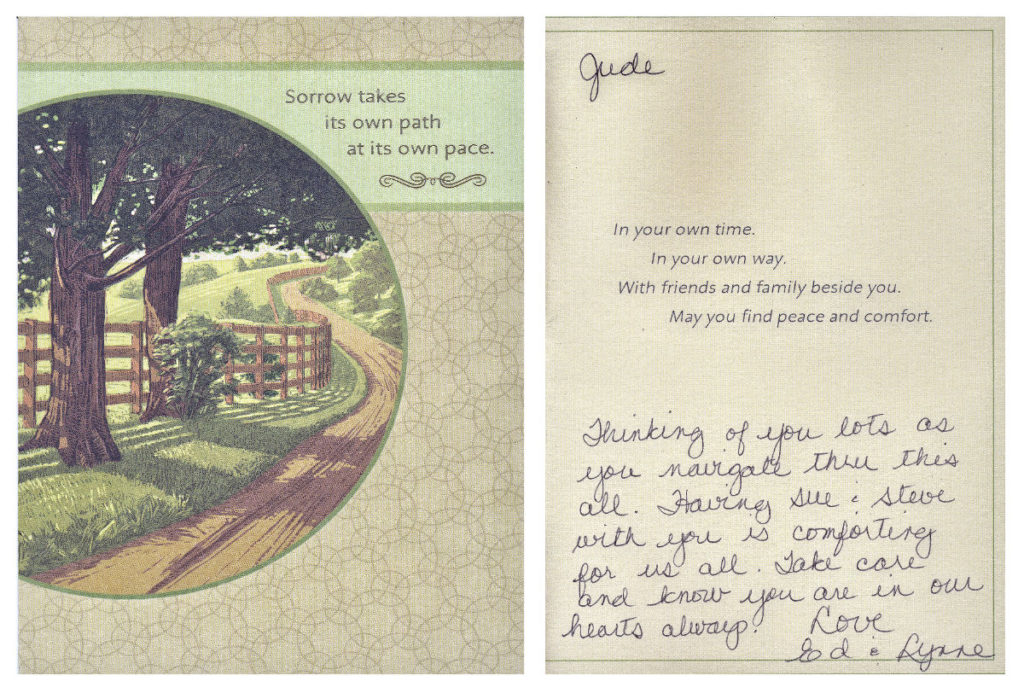 Sorrow takes
its own path
at its own pace.
Jude
In your own time.
In your own way.
With friends and family beside you.
May you find peace and comfort.
Thinking of you lots as
you navigate thru this
all. Having Sue & Steve
with you is comforting
for us all. Take care
and know you are in our
hearts always. Love
Ed & Lynne